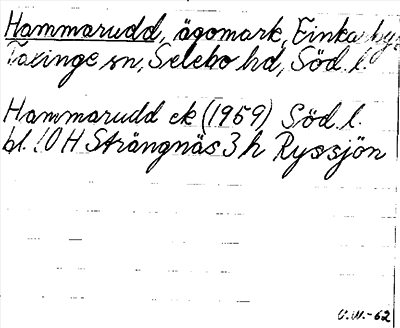 Hammarudd, ägomark, Finkarby,
Taxinge sn, Selebo hd, Söd. l.
Hammarudd ek (1959) Söd. l.
bl. 10 H Strängnäs 3 h Ryssjön
V.W.-62